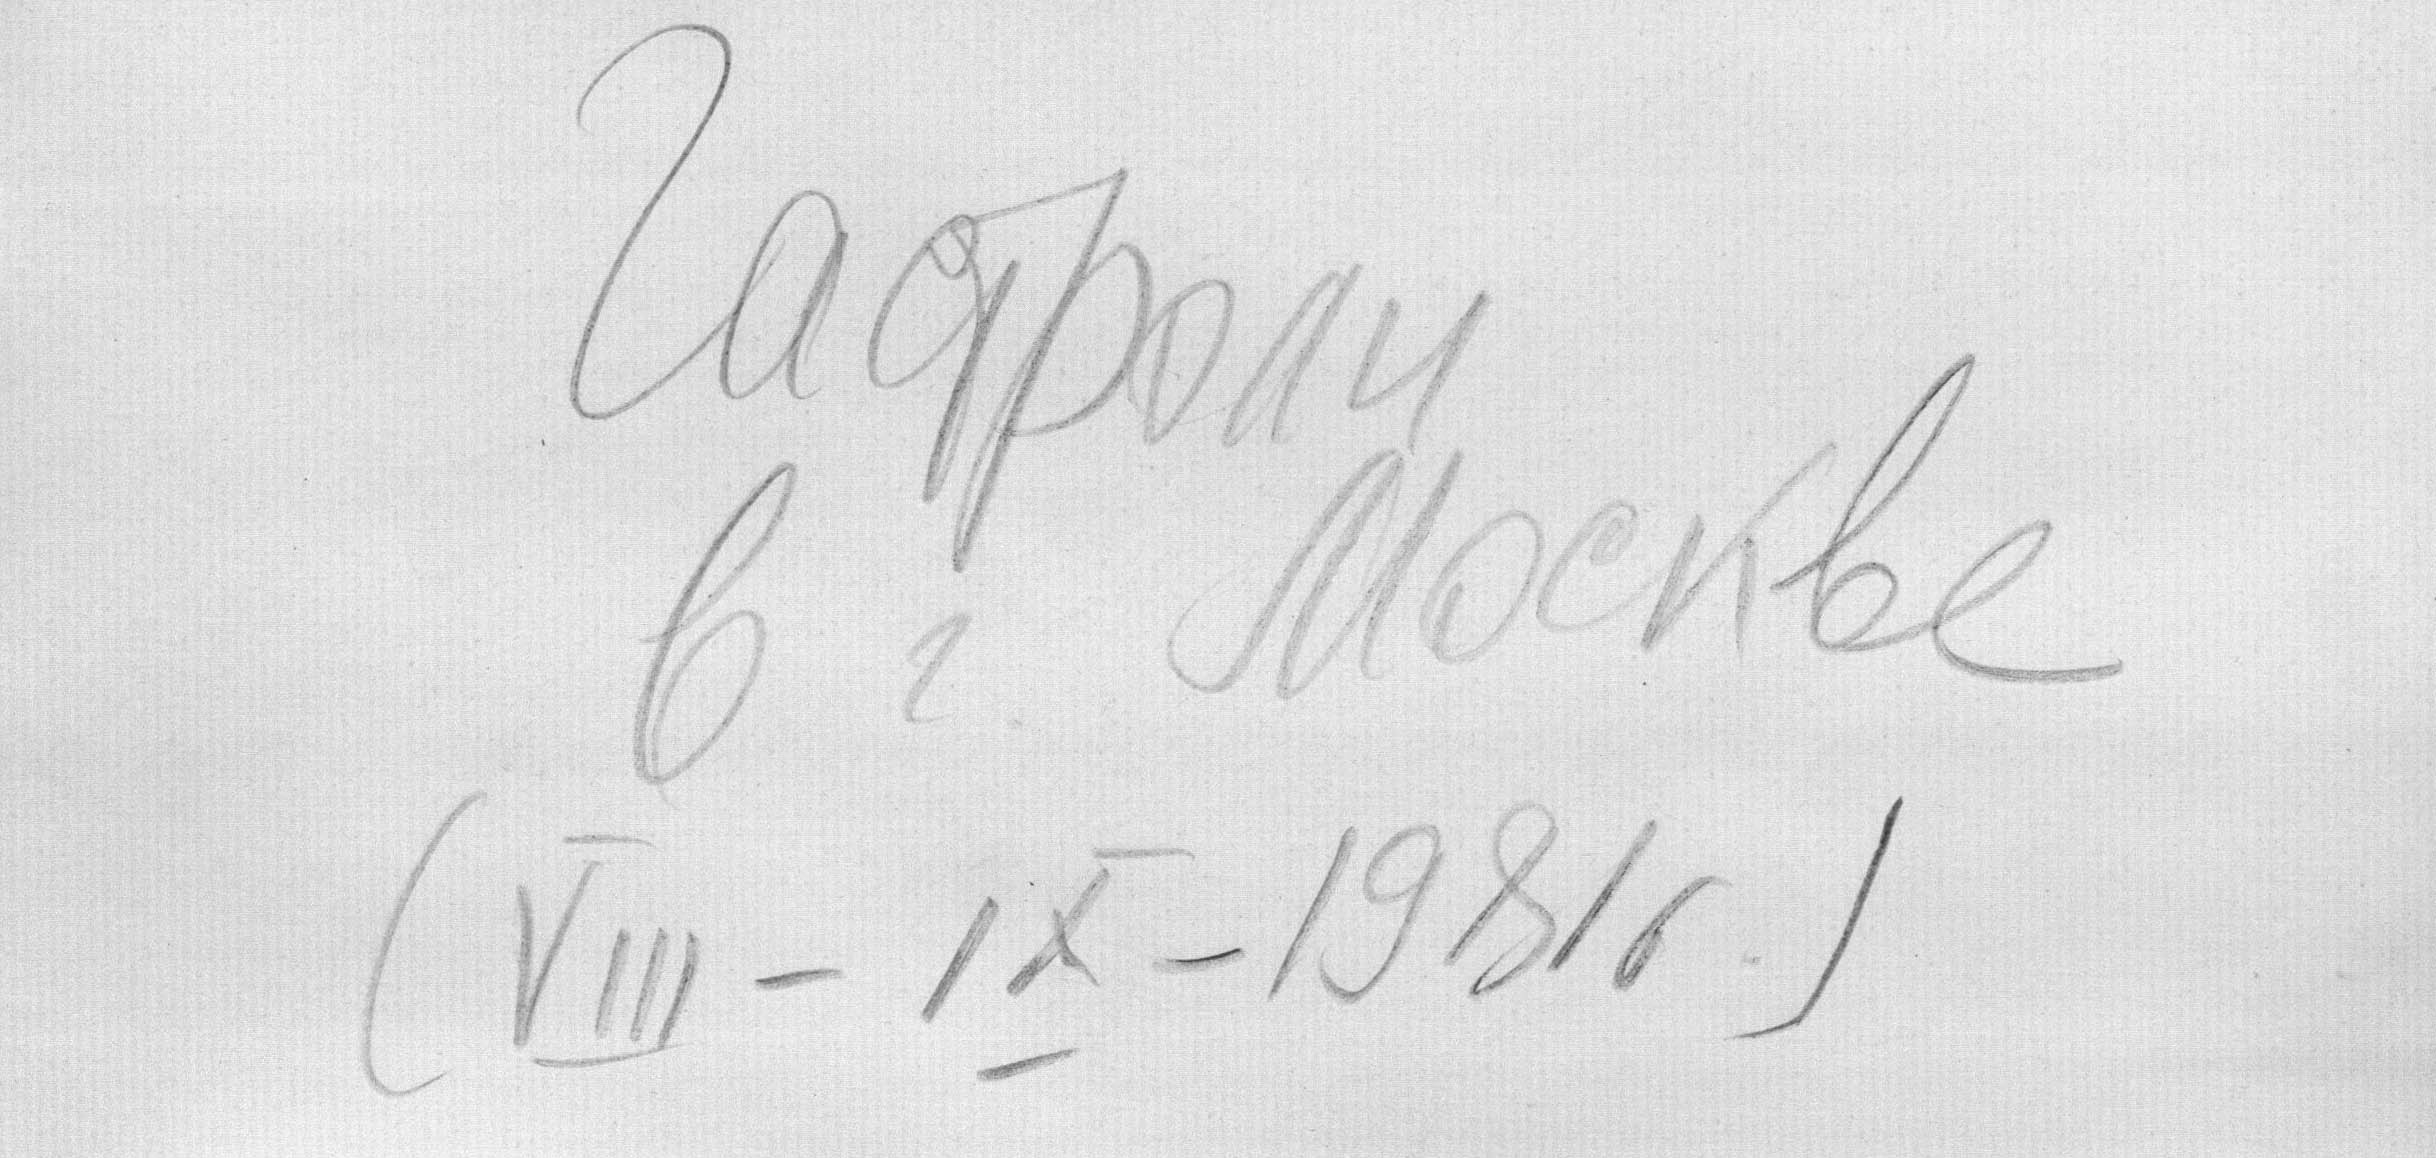 Гастроли
в г. Москве
(VIII - IX - 1981 г.)